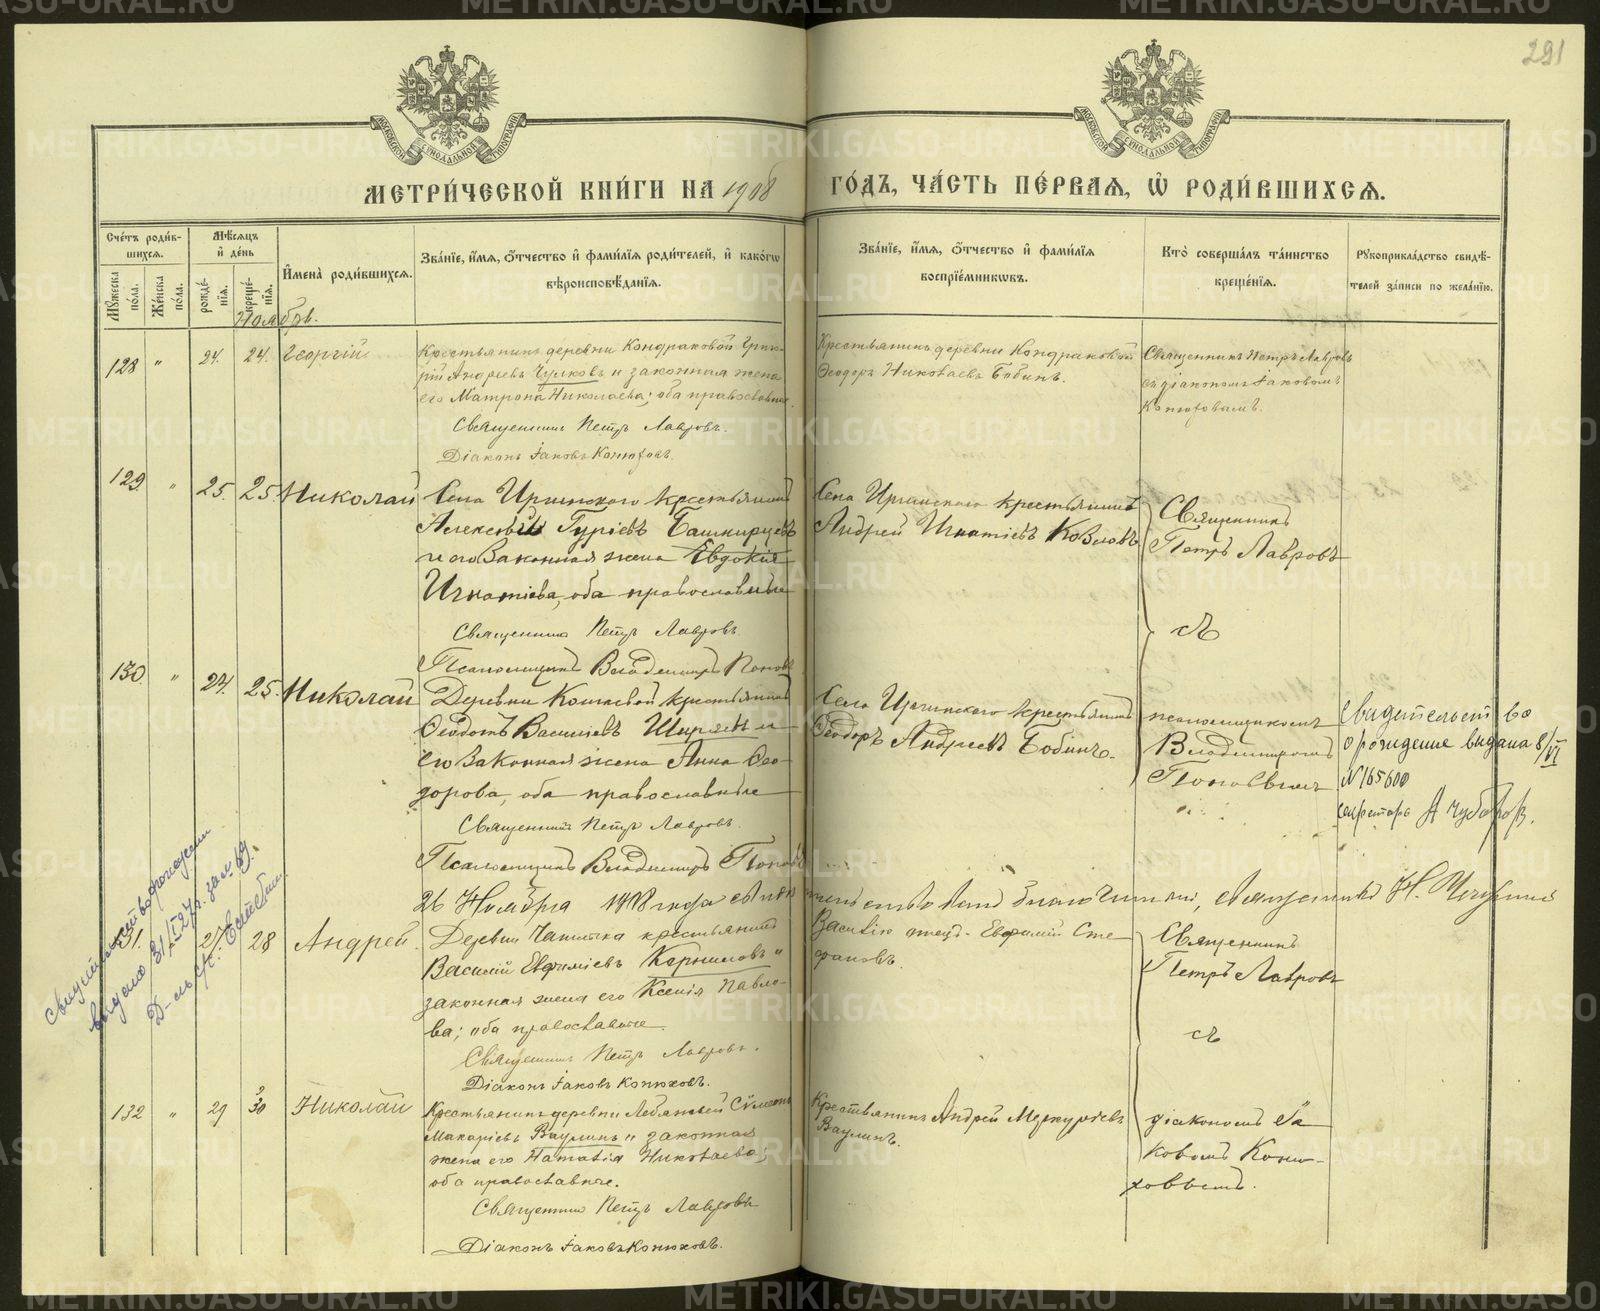 291
МОСКОВСКОЙ СѴНОДАЛЬНОЙ ТИПОГРАФІИ
МОСКОВСКОЙ СѴНОДАЛЬНОЙ ТИПОГРАФІИ
МЕТРИ́ЧЕСКОЙ КНИ́ГИ НА 1908 ГО́ДЪ, ЧА́СТЬ ПЕ́РВАЯ, Ѡ҆ РОДИ́ВШИХСѦ.
Сче́тъ роди́в-
шихсѧ.
Мꙋ́жеска по́ла.
Же́нска по́ла.
Мѣ́сѧцъ
и҆ де́нь
рожде́-
нїѧ.
креще́-
нїѧ.
И҆мена̀ роди́вшихсѧ.
Зва́нїе, и҆́мѧ, ѻ҆́тчество и҆ фами́лїѧ роди́телей, и҆ како́гѡ
вѣроисповѣ́данїѧ.
Зва́нїе, и҆́мѧ, ѻ҆́тчество и҆ фами́лїѧ
воспрїе́мникѡвъ.
Кто̀ соверша́лъ та́инство
креще́нїѧ.
Рꙋкоприкла́дство свидѣ́-
телей за́писи по жела́нїю.
Ноябрь.
128 " 24. 24. Георгій
Крестьянинъ деревни Кондраковой Григо-
рій Андреевъ Чулковъ и законная жена
его Матрона Николаева; оба православные.
Священникъ Петръ Лавровъ.
Діаконъ Іаковъ Конюховъ.
Крестьянинъ деревни Кондраковой
Ѳеодоръ Николаевъ Бобинъ.
Священникъ Петръ Лавровъ
съ діакономъ Іаковомъ
Конюховымъ.
129. " 25. 25. Николай
Села Иргинского крестьянинъ
Алексѣй Гурьевъ Башкирцевъ
и его законная жена Евдокія
Игнатіева, оба православные
Священникъ Петръ Лавровъ.
Псаломщикъ Владимиръ Поповъ
Села Иргинского крестьянинъ
Андрей Игнатіевъ Козловъ
Священникъ
Петръ Лавровъ
съ
130. " 24. 25. Николай
Деревни Кошаевой крестьянинъ
Ѳеодотъ Васильевъ Ширяевъ и
его законная жена Анна Ѳео-
дорова, оба православные
Священникъ Петръ Лавровъ.
Псаломщикъ Владимиръ Поповъ
Села Иргинского крестьянинъ
Ѳеодоръ Андреевъ Бобинъ.
псаломщикомъ
Владимиромъ
Поповымъ
Свидетельство
о рождение выдана 8/VI
N 165600
секретарь
26 Ноября 1908 года благочинный, священникъ Н.
Свидетельство о рождении
выдано 31/I 27 г. за № 69.
131. " 27. 28 Андрей.
крестьянинъ
Василій Евфиміевъ Корниловъ и
законная жена его Ксенія Павло-
ва; оба православные.
Священникъ Петръ Лавровъ.
Діаконъ Іаковъ Конюховъ.
Евфимій Сте-
фановъ.
Священникъ
Петръ Лавровъ
съ
132 " 29 30 Николай
Крестьянинъ деревни Лебяжьей Сѵмеонъ
Макаріевъ Ваулинъ и законная
жена его Наталія Николаева;
оба православные.
Священникъ Петръ Лавровъ
Діаконъ Іаковъ Конюховъ.
Крестьянинъ Андрей Меркурьевъ
Ваулинъ.
діакономъ Іа-
ковомъ Коню-
ховымъ.
METRIKI.GASO-URAL.RU